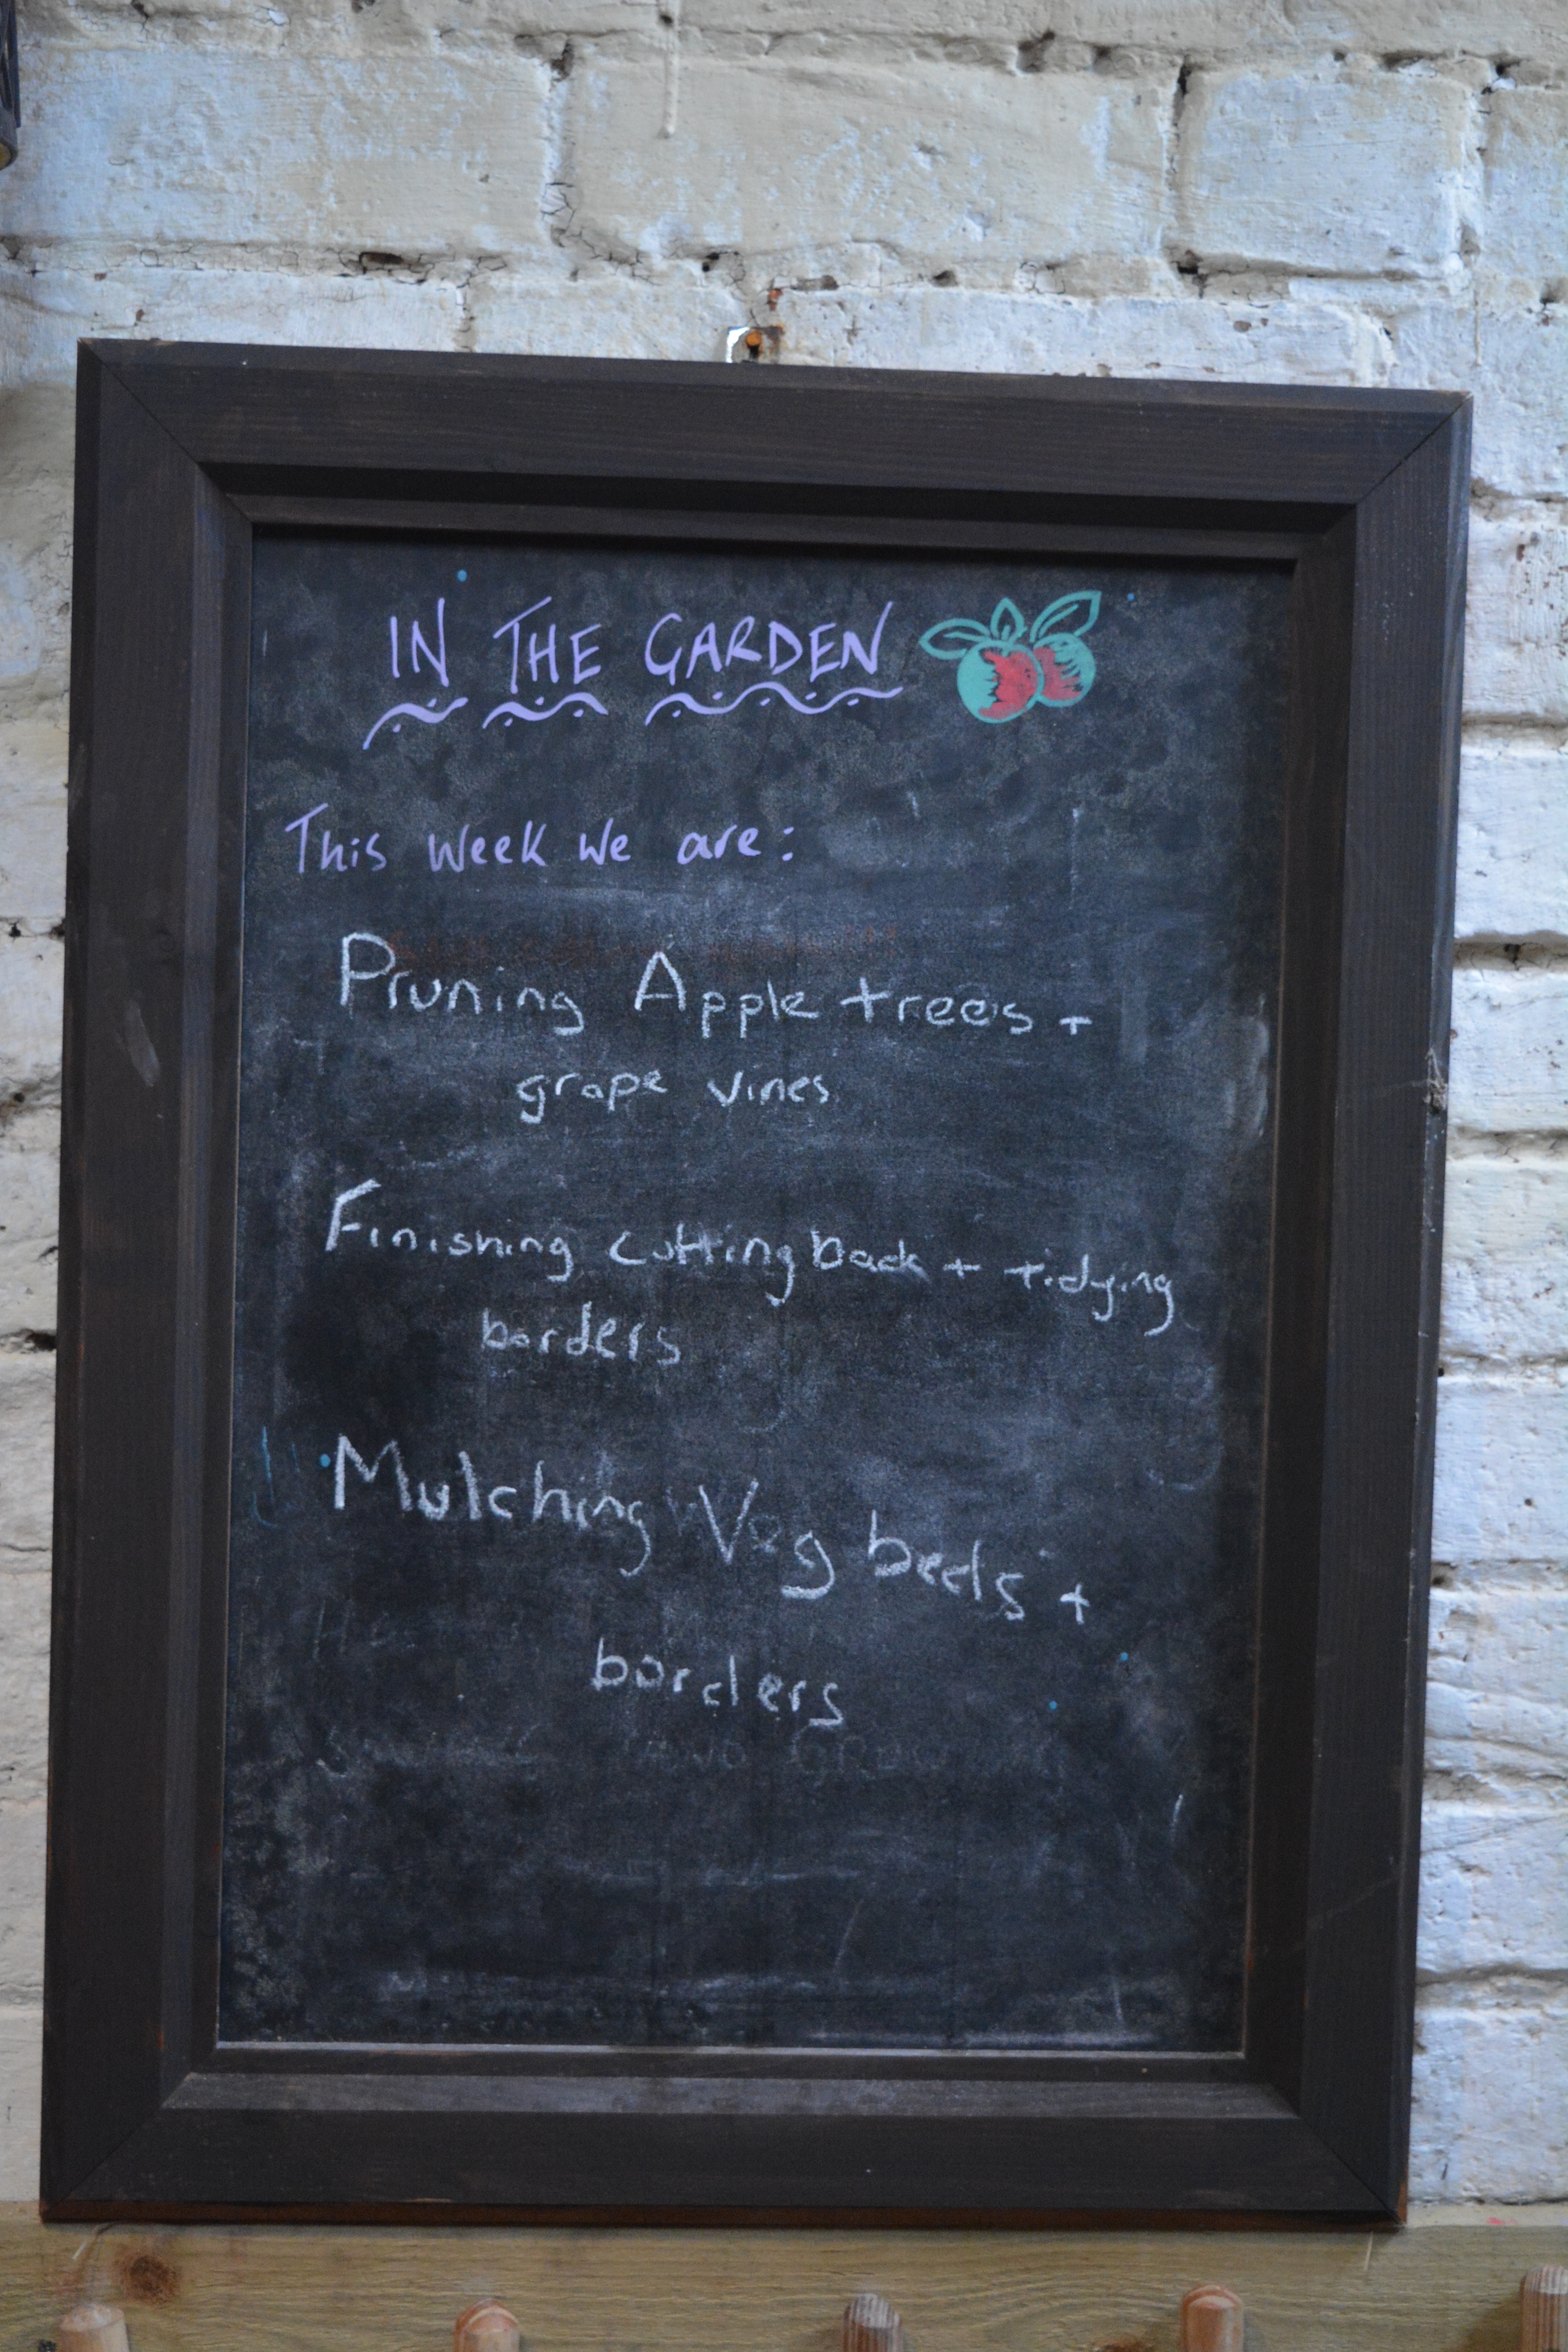 IN THE GARDEN
This week we are:
Pruning Apple trees +
grape vines
Finishing cutting back + tidying
borders
Mulching Veg beds +
borders